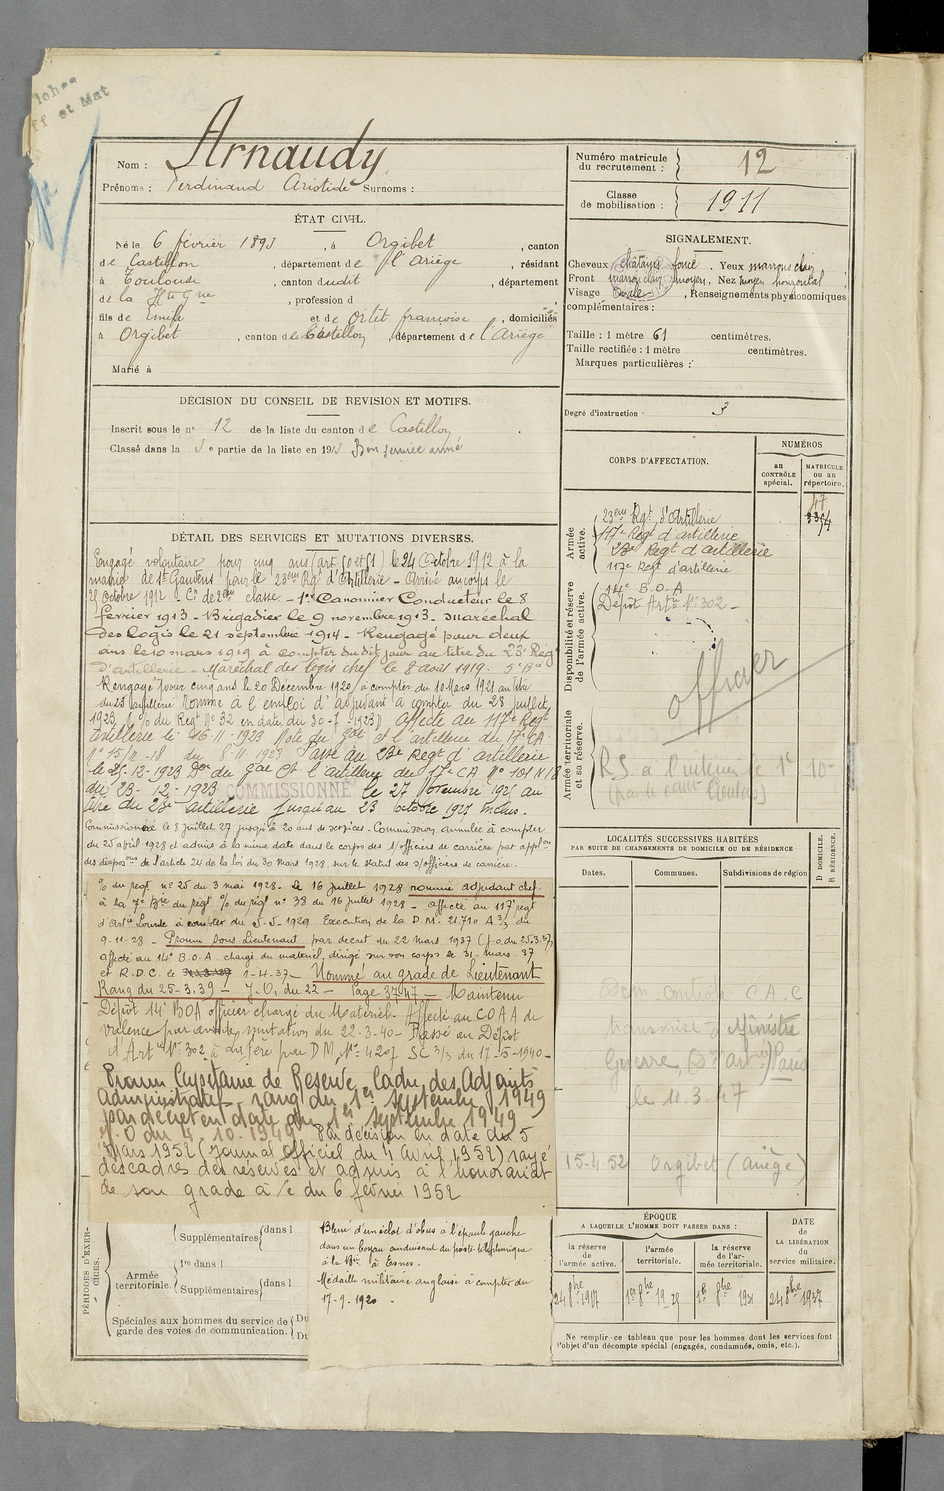 ff et Mat
Nom : Arnaudy
Prénoms : Ferdinand Aristide Surnoms :
ÉTAT CIVIL.
Né le 6 février 1893, à Orgibet, canton
de Castillon, département de l'Ariège, résidant
à Toulouse, canton dudit, département
de la Hte Gne, profession d
fils de Emile et de Ortet françoise, domiciliés
à Orgibet, canton de Castillon, département de l'Ariège
Marié à
DÉCISION DU CONSEIL DE REVISION ET MOTIFS.
Inscrit sous le n° 12 de la liste du canton de Castillon
Classé dans la 3e partie de la liste en 1913 Bon service armé
DÉTAIL DES SERVICES ET MUTATIONS DIVERSES.
Engagé volontaire pour cinq ans (art 50 et 51) le 24 Octobre 1912 à la
mairie de St Gaudens pour le 23eme Rgt d'Artillerie - Arrivé au corps le
25 Octobre 1912 2e Cr de 2eme classe - 1er Canonnier Conducteur le 8
février 1913 - Brigadier le 9 novembre 1913 - Maréchal
des logis le 21 septembre 1914 - Rengagé pour deux
ans le 10 mars 1919 à compter dudit jour au titre du 23e Rég
d'artillerie - Maréchal des logis chef le 8 août 1919. 5e Bie
Rengagé pour cinq ans le 20 Décembre 1920 à compter du 10 Mars 1921 au titre
du 23 artillerie Nommé à l'emploi d'adjudant à compter du 28 juillet
1923, (O/ du Regt N° 32 en date du 30-7-1923) Affecté au 117e Regt
Artillerie le 16-11-1923 Note du Gal Ct l'artillerie du 17e CA
N° 1511/18 du 8-11-1923 Passé au 23e Regt d'artillerie
le 25-12-1923 Don du Gal Ct l'artillerie du 17e CA N° 181 N/18
du 23-12-1923 COMMISSIONNÉ le 27 Novembre 1925 au
titre du 23e artillerie jusqu'au 23 octobre 1927 inclus.
Commissionné le 8 juillet 27 jusqu'à 20 ans de services. Commission annulée à compter
du 25 avril 1928 et admis à la même date dans le corps des s/officiers de carrière par applon
des disposons de l'article 24 de la loi du 30 mars 1928, sur le statut des s/officiers de carrière.
O/ du régt n° 25 du 3 mai 1928. Le 16 juillet 1928 nommé adjudant chef
à la 7e Bie du régt O/ du régt n° 38 du 16 juillet 1928 - affecté au 117e régt
d'Artie Lourde à compter du 5-5-1929 Exécution de la D.M. 21.710 A 3/3 du
9-11-28 - Promu Sous Lieutenant par décret du 22 mars 1937 (J.O. du 25.3.37)
affecté au 14e B.O.A. chargé du matériel, dirigé sur son corps le 31. mars. 37
et R.D.C. le 1-4-37 - Nommé au grade de Lieutenant
Rang du 25-3-39 - J.O. du 22 - Page 3747 - Maintenu
Dépôt 14e BOA officier chargé du Matériel. Affecté au COAA de
Valence par mutation du 22-3-40 - Passé au Dépôt
d'Artie N° 302 à différé par D M N° 4207 SC 3/3 du 17-5-1940 -
Promu Capitaine de Réserve Cadre des Adjoints
Administratifs rang du 1er septembre 1949
par décret en date du 1er septembre 1949
J.O du 4-10-1949 Par décision en date du 5
Mars 1952 (Journal Officiel du 4 Avril 1952) rayé
des cadres des réserves et admis à l'honorariat
de son grade à /c du 6 février 1952
Blessé d'un éclat d'obus à l'épaule gauche
dans un boyau conduisant du poste téléphonique
à la Bie à Esnes.
Médaille militaire anglaise à compter du
17-9-1920.
PÉRIODES D'EXER-
CICES.
Supplémentaires dans l
Armée territoriale.
1re dans l
Supplémentaires dans l
Spéciales aux hommes du service de Du
garde des voies de communication. Du
Numéro matricule
du recrutement : 12
Classe
de mobilisation : 1911
SIGNALEMENT.
Cheveux châtains foncé. Yeux marrons clair
Front moyen, Nez moyen horizontal
Visage Ovale, Renseignements physionomiques
complémentaires :
Taille : 1 mètre 61 centimètres.
Taille rectifiée : 1 mètre centimètres.
Marques particulières :
Degré d'instruction : 3
CORPS D'AFFECTATION.
NUMÉROS
au CONTRÔLE spécial.
MATRICULE ou au répertoire.
Armée active.
23eme Rgt d'Artillerie 47
117e Regt d'artillerie 3354
23e Regt d'artillerie
117e Regt d'artillerie
Disponibilité et réserve
de l'armée active.
14e B.O.A
Dépôt Artie N° 302 -
officier
Armée territoriale
et sa réserve.
R.S. à l'intérieur le 1e 10-
LOCALITÉS SUCCESSIVES HABITÉES
PAR SUITE DE CHANGEMENTS DE DOMICILE OU DE RÉSIDENCE
Dates. Communes. Subdivisions de région
D DOMICILE.
R RÉSIDENCE.
Dom. contrôle C.A.C
transmise Ministre
Guerre, (Don artie) Paris
le 11.3.47
15-4-52 Orgibet (Ariège)
ÉPOQUE
A LAQUELLE L'HOMME DOIT PASSER DANS :
DATE DE LA LIBÉRATION du service militaire.
la réserve de l'armée active.
l'armée territoriale.
la réserve de l'armée territoriale.
24 8bre 1917
1er 8bre 1929
1er 8bre 1931
24 8bre 1937
Ne remplir ce tableau que pour les hommes dont les services font
l'objet d'un décompte spécial (engagés, condamnés, omis, etc.).